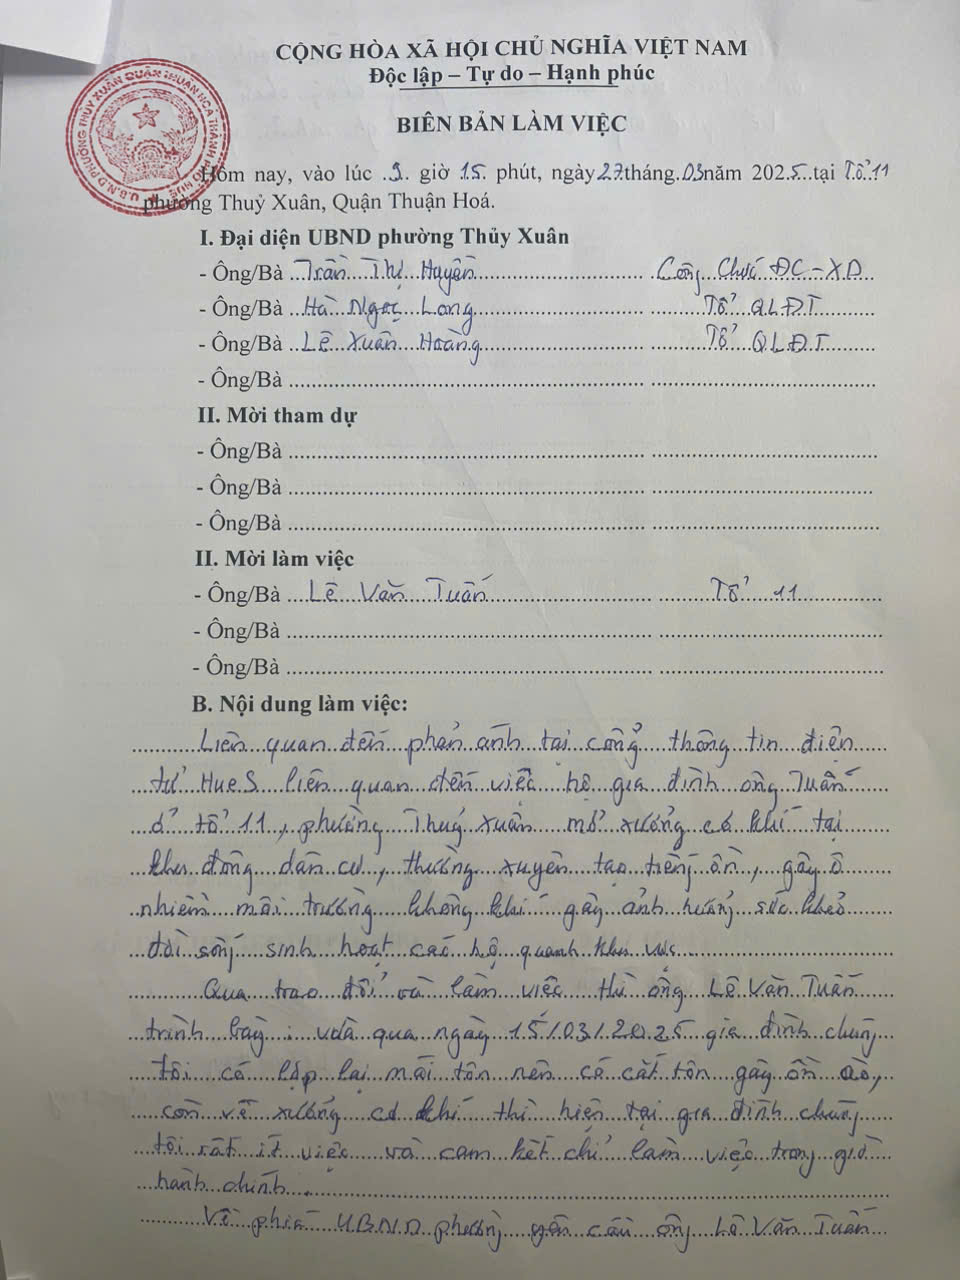 CỘNG HÒA XÃ HỘI CHỦ NGHĨA VIỆT NAM
Độc lập – Tự do – Hạnh phúc
BIÊN BẢN LÀM VIỆC
U.B.N.D PHƯỜNG THUỶ XUÂN QUẬN THUẬN HOÁ THÀNH PHỐ HUẾ
Hôm nay, vào lúc .9. giờ 15. phút, ngày 27 tháng .03 năm 2025 tại Tổ 11
phường Thuỷ Xuân, Quận Thuận Hoá.
I. Đại diện UBND phường Thủy Xuân
- Ông/Bà Trần Thị Huyền Công Chức ĐC-XD
- Ông/Bà Hà Ngọc Long Tổ QLĐT
- Ông/Bà Lê Xuân Hoàng Tổ QLĐT
- Ông/Bà
II. Mời tham dự
- Ông/Bà
- Ông/Bà
- Ông/Bà
II. Mời làm việc
- Ông/Bà Lê Văn Tuấn Tổ 11
- Ông/Bà
- Ông/Bà
B. Nội dung làm việc:
Liên quan đến phản ánh tại cổng thông tin điện
tử Hue.S liên quan đến việc hộ gia đình ông Tuấn
ở tổ 11, phường Thuỷ Xuân mở xưởng cơ khí tại
khu đông dân cư, thường xuyên tạo tiếng ồn, gây ô
nhiễm môi trường không khí gây ảnh hưởng sức khoẻ
đời sống sinh hoạt các hộ quanh khu vực
Qua trao đổi và làm việc thì ông Lê Văn Tuấn
trình bày: vừa qua ngày 15/03/2025 gia đình chúng
tôi có lợp lại mái tôn nên có cắt tôn gây ồn ào,
còn về xưởng cơ khí thì hiện tại gia đình chúng
tôi rất ít việc và cam kết chỉ làm việc trong giờ
hành chính.
Về phía U.B.N.D phường yêu cầu ông Lê Văn Tuấn